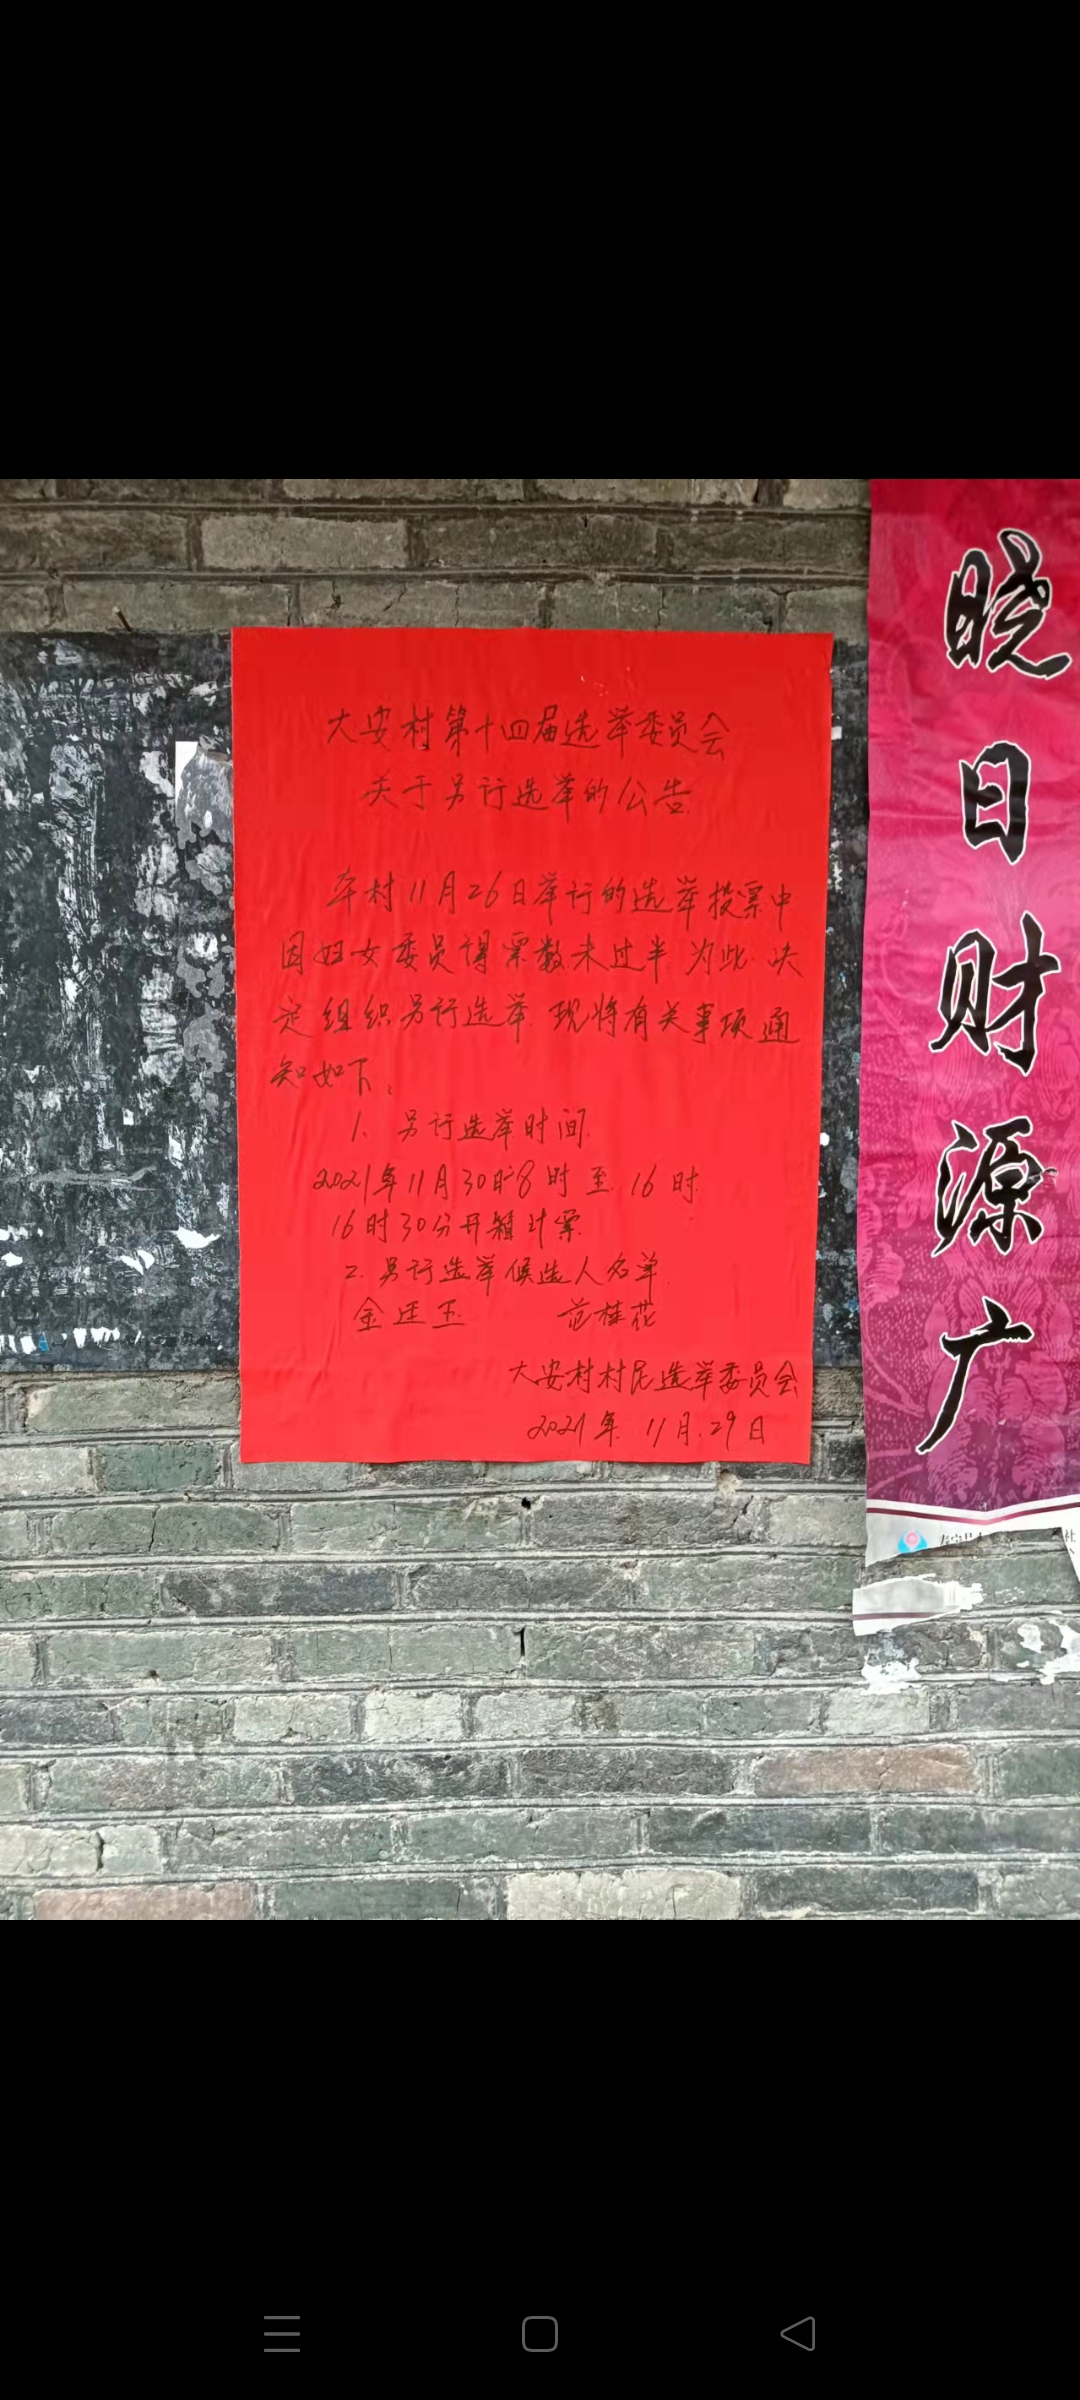 大安村第十四届选举委员会
关于另行选举的公告
本村11月26日举行的选举投票中
因妇女委员得票数未过半 为此 决
定组织另行选举 现将有关事项通
知如下:
1、另行选举时间
2021年11月30日8时至16时
16时30分开箱计票
2.另行选举候选人名单
金 玉 范桂花
大安村村民选举委员会
2021年11月29日
晓日财源广